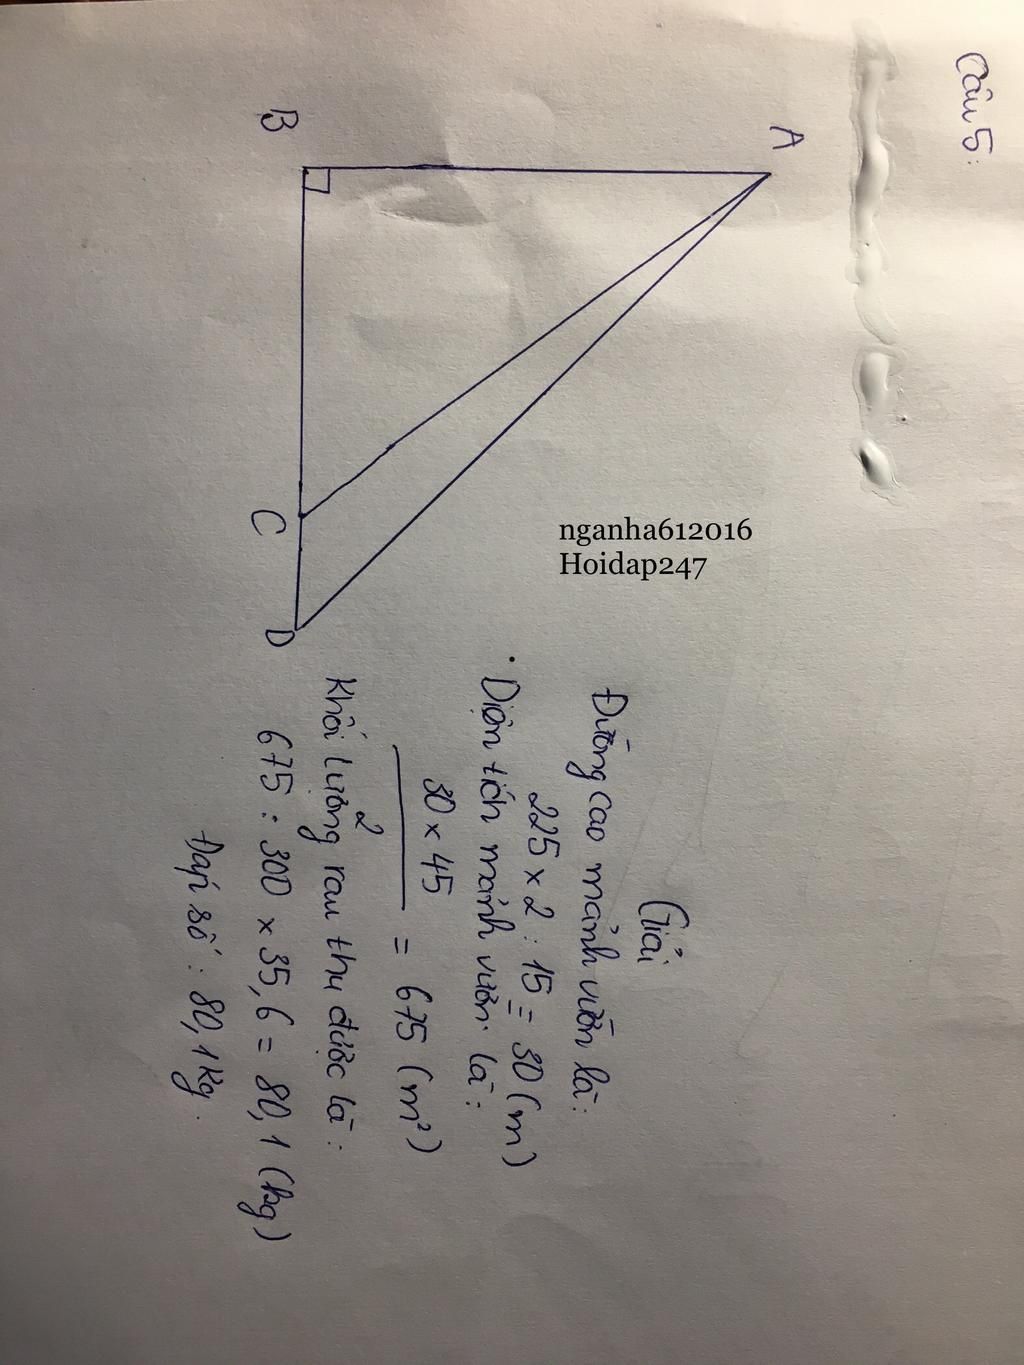 Câu 5:
A
B
C
D
nganha612016
Hoidap247
Giải
Đường cao mảnh vườn là:
225 x 2 : 15 = 30 (m)
Diện tích mảnh vườn là:
30 x 45
= 675 (m²)
2
Khối lượng rau thu được là:
675 : 300 x 35,6 = 80,1 (kg)
Đáp số : 80,1kg.